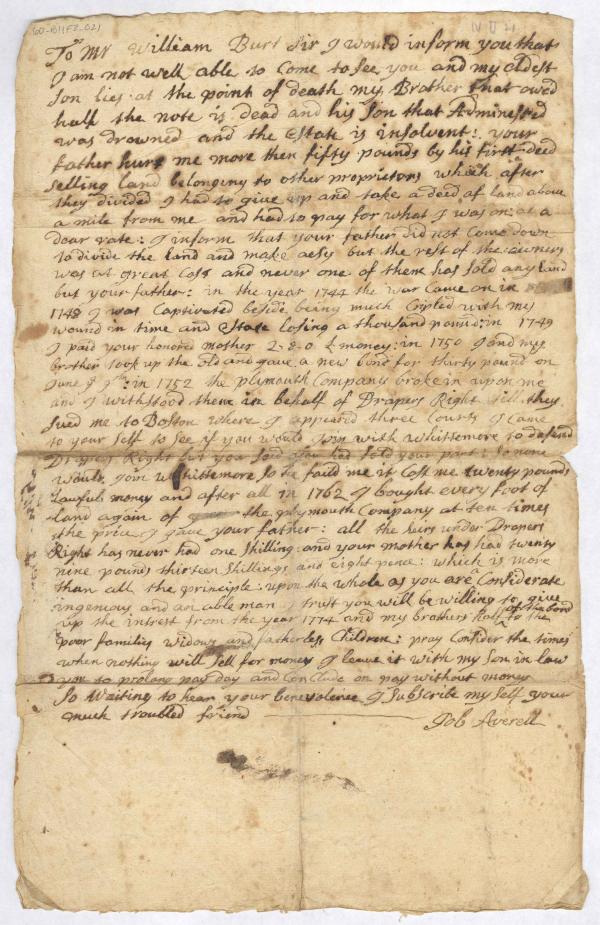 To Mr William Burt Sir I would inform you that
I am not well able to Come to See you and my oldest
Son lies at the point of death my Brother that owed
half the note is dead and his Son that Adminestred
was drowned and the Estate is insolvent: your
father hurt me more then fifty pounds by his first deed
selling land belonging to other proprietors which after
they divided I had to give up and take a deed of land above
a mile from me and had to pay for what I was on: at a
dear rate: I inform that your father did not Come down
to divide the land and make aesy but the rest of the owners
was at great Cost and never one of them has Sold any land
but your father: in the year 1744 the war Came on in
1748 I was Captivated beside being much Cripled with my
wound in time and Estate losing a thousand pound: in 1749
I paid your honored mother 2-8-0 money: in 1750 I and my
brother took up the old and gave a new bond for thirty pound on
June 9: in 1752 the plymouth Company broke in upon me
and I withstood them in behalf of Drapers Right till they
Sued me to Boston where I appeared three Courts I Came
to your Self to See if you would Joyn with Whittemore to defend
Drapers Right but you Said you had Sold your part: So none
would Joyn Whittemore So he faild me it Cost me twenty pounds
Lawful money and after all in 1762 I bought every foot of
land again of the plymouth Company at ten times
the price I gave your father: all the heirs under Drapers
Right has never had one Shilling and your mother has had twenty
nine pounds thirteen Shillings and eight pence: which is more
than all the principle: upon the whole as you are Considerate
ingenious and an able man I trust you will be willing to give
up the intrest from the year 1774 and my brothers half of the bond to the
poor families widows and fatherless Children: pray Consider the times
when nothing will Sell for money I leave it with my Son in law
you to prolong pay day and Conclude on pay without money
So Waiting to hear your benevolence I Subscribe my Self your
much troubled friend Job Averell